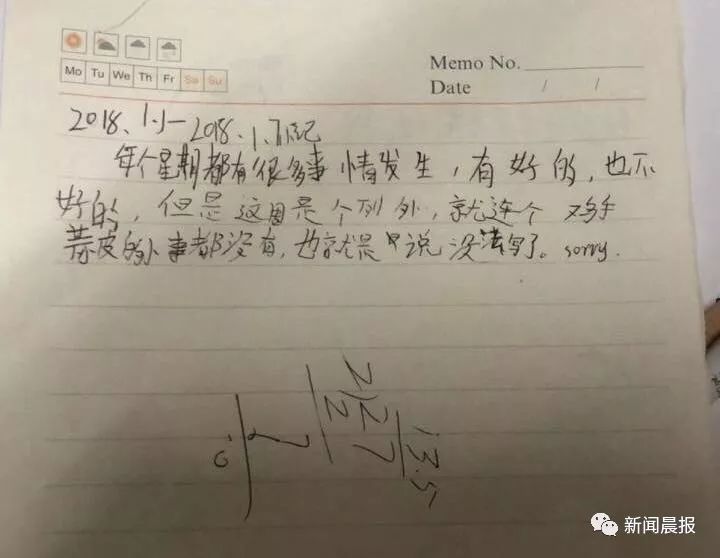 Mo Tu We Th Fr Sa Su
Memo No.
Date / /
2018.1.1—2018.1.7周记
每个星期都有很多事情发生,有好的,也不
好的,但是这周是个列外,就连个鸡毛
蒜皮的小事都没有,也就是说没法写了。sorry.
13.5
2)27
2
7
新闻晨报